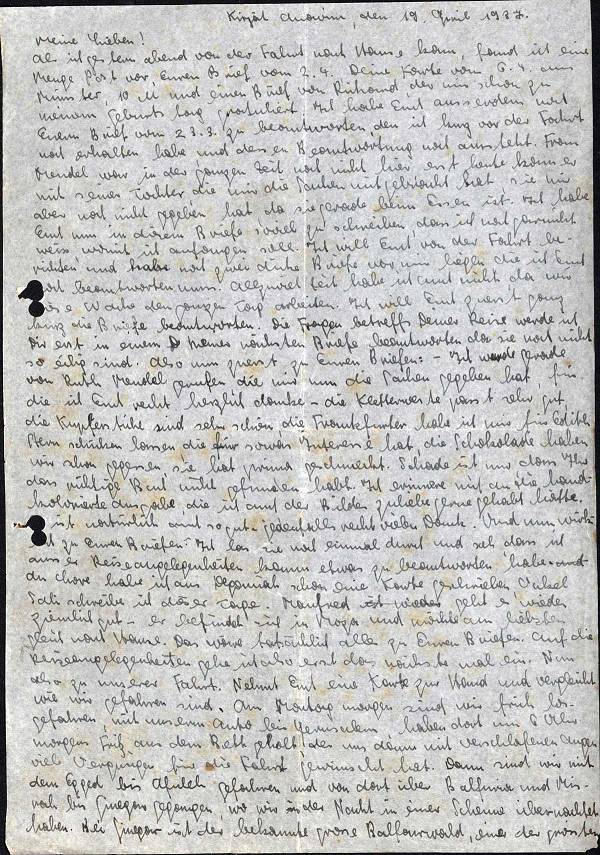 Kirjat Anavim, den 19. April 1937.
Meine Lieben!
Als ich gestern abend von der Fahrt nach Hause kam, fand ich eine
Menge Post vor Euren Brief vom 2.4. Deine Karte vom 6.4. aus
Münster, 10 M und einen Brief von Richard der mir schon zu
meinem Geburtstag gratuliert. Ich habe Euch ausserdem noch
Euren Brief vom 23.3. zu beantworten den ich kurz vor der Fahrt
noch erhalten habe und dessen Beantwortung noch aussteht. Frau
Mendel war in der ganzen Zeit noch nicht hier erst heute kam er
mit seiner Tochter die mir die Sachen mitgebracht hat sie mir
aber noch nicht gegeben hat da sie gerade beim Essen ist. Ich habe
Euch nun in diesem Briefe soviel zu schreiben dass ich noch garnicht
weiss womit ich anfangen soll. Ich will Euch von der Fahrt be-
richten und habe noch zwei dicke Briefe vor mir liegen die ich Euch
noch beantworten muss. Allzuviel Zeit habe ich auch nicht da wir
diese Woche den ganzen Tag arbeiten. Ich will Euch zuerst ganz
kurz die Briefe beantworten. Die Fragen betreffs Deiner Reise werde ich
Dir erst in einem meiner nächsten Briefe beantworten da sie noch nicht
so eilig sind. Also nun zuerst zu Euren Briefen: – Ich werde gerade
von Ruth Mendel gerufen die mir nun die Sachen gegeben hat, für
die ich Euch recht herzlich danke – die Kletterweste passt sehr gut,
die Kupferstiche sind sehr schön die Frankfurter habe ich uns für Edith
Stern schicken lassen die für sowas Interesse hat, die Schokolade haben
wir schon gegessen sie hat prima geschmeckt. Schade ist nur dass Ihr
das richtige Buch nicht gefunden habt. Ich erinnere mich an die hand-
kolorierte Ausgabe die ich auch der Bilder zuliebe gerne gehabt hätte.
ist natürlich auch so gut jedenfalls recht vielen Dank. Und nun wirk-
lich zu Euren Briefen: Ich las sie noch einmal durch und seh dass ich
ausser Reiseangelegenheiten kaum etwas zu beantworten habe. An
habe ich aus Deganiah schon eine Karte geschrieben Onkel
Sali schreibe ich dieser Tage. Manfred geht es wieder
ziemlich gut – er befindet sich in Moza und möchte am liebsten
gleich nach Hause. Das wäre tatsächlich alles zu Euren Briefen. Auf die
Reiseangelegenheiten gehe ich also erst das nächste mal ein. Nun
also zu unserer Fahrt. Nehmt Euch eine Karte zur Hand und vergleicht
wie wir gefahren sind. Am Montag morgen sind wir früh los-
gefahren, mit unserm Auto bis Jerusalem haben dort um 6 Uhr
morgens Fritz aus dem Bett geholt der uns dann mit verschlafenen Augen
viel Vergnügen für die Fahrt gewünscht hat. Dann sind wir mit
dem Egged bis Afuleh gefahren und von dort über Balfuria und Mis-
rah bis Ginegar gegangen, wo wir in der Nacht in einer Scheune übernachtet
haben. Bei Ginegar ist der bekannte grosse Balfourwald, einer der grössten